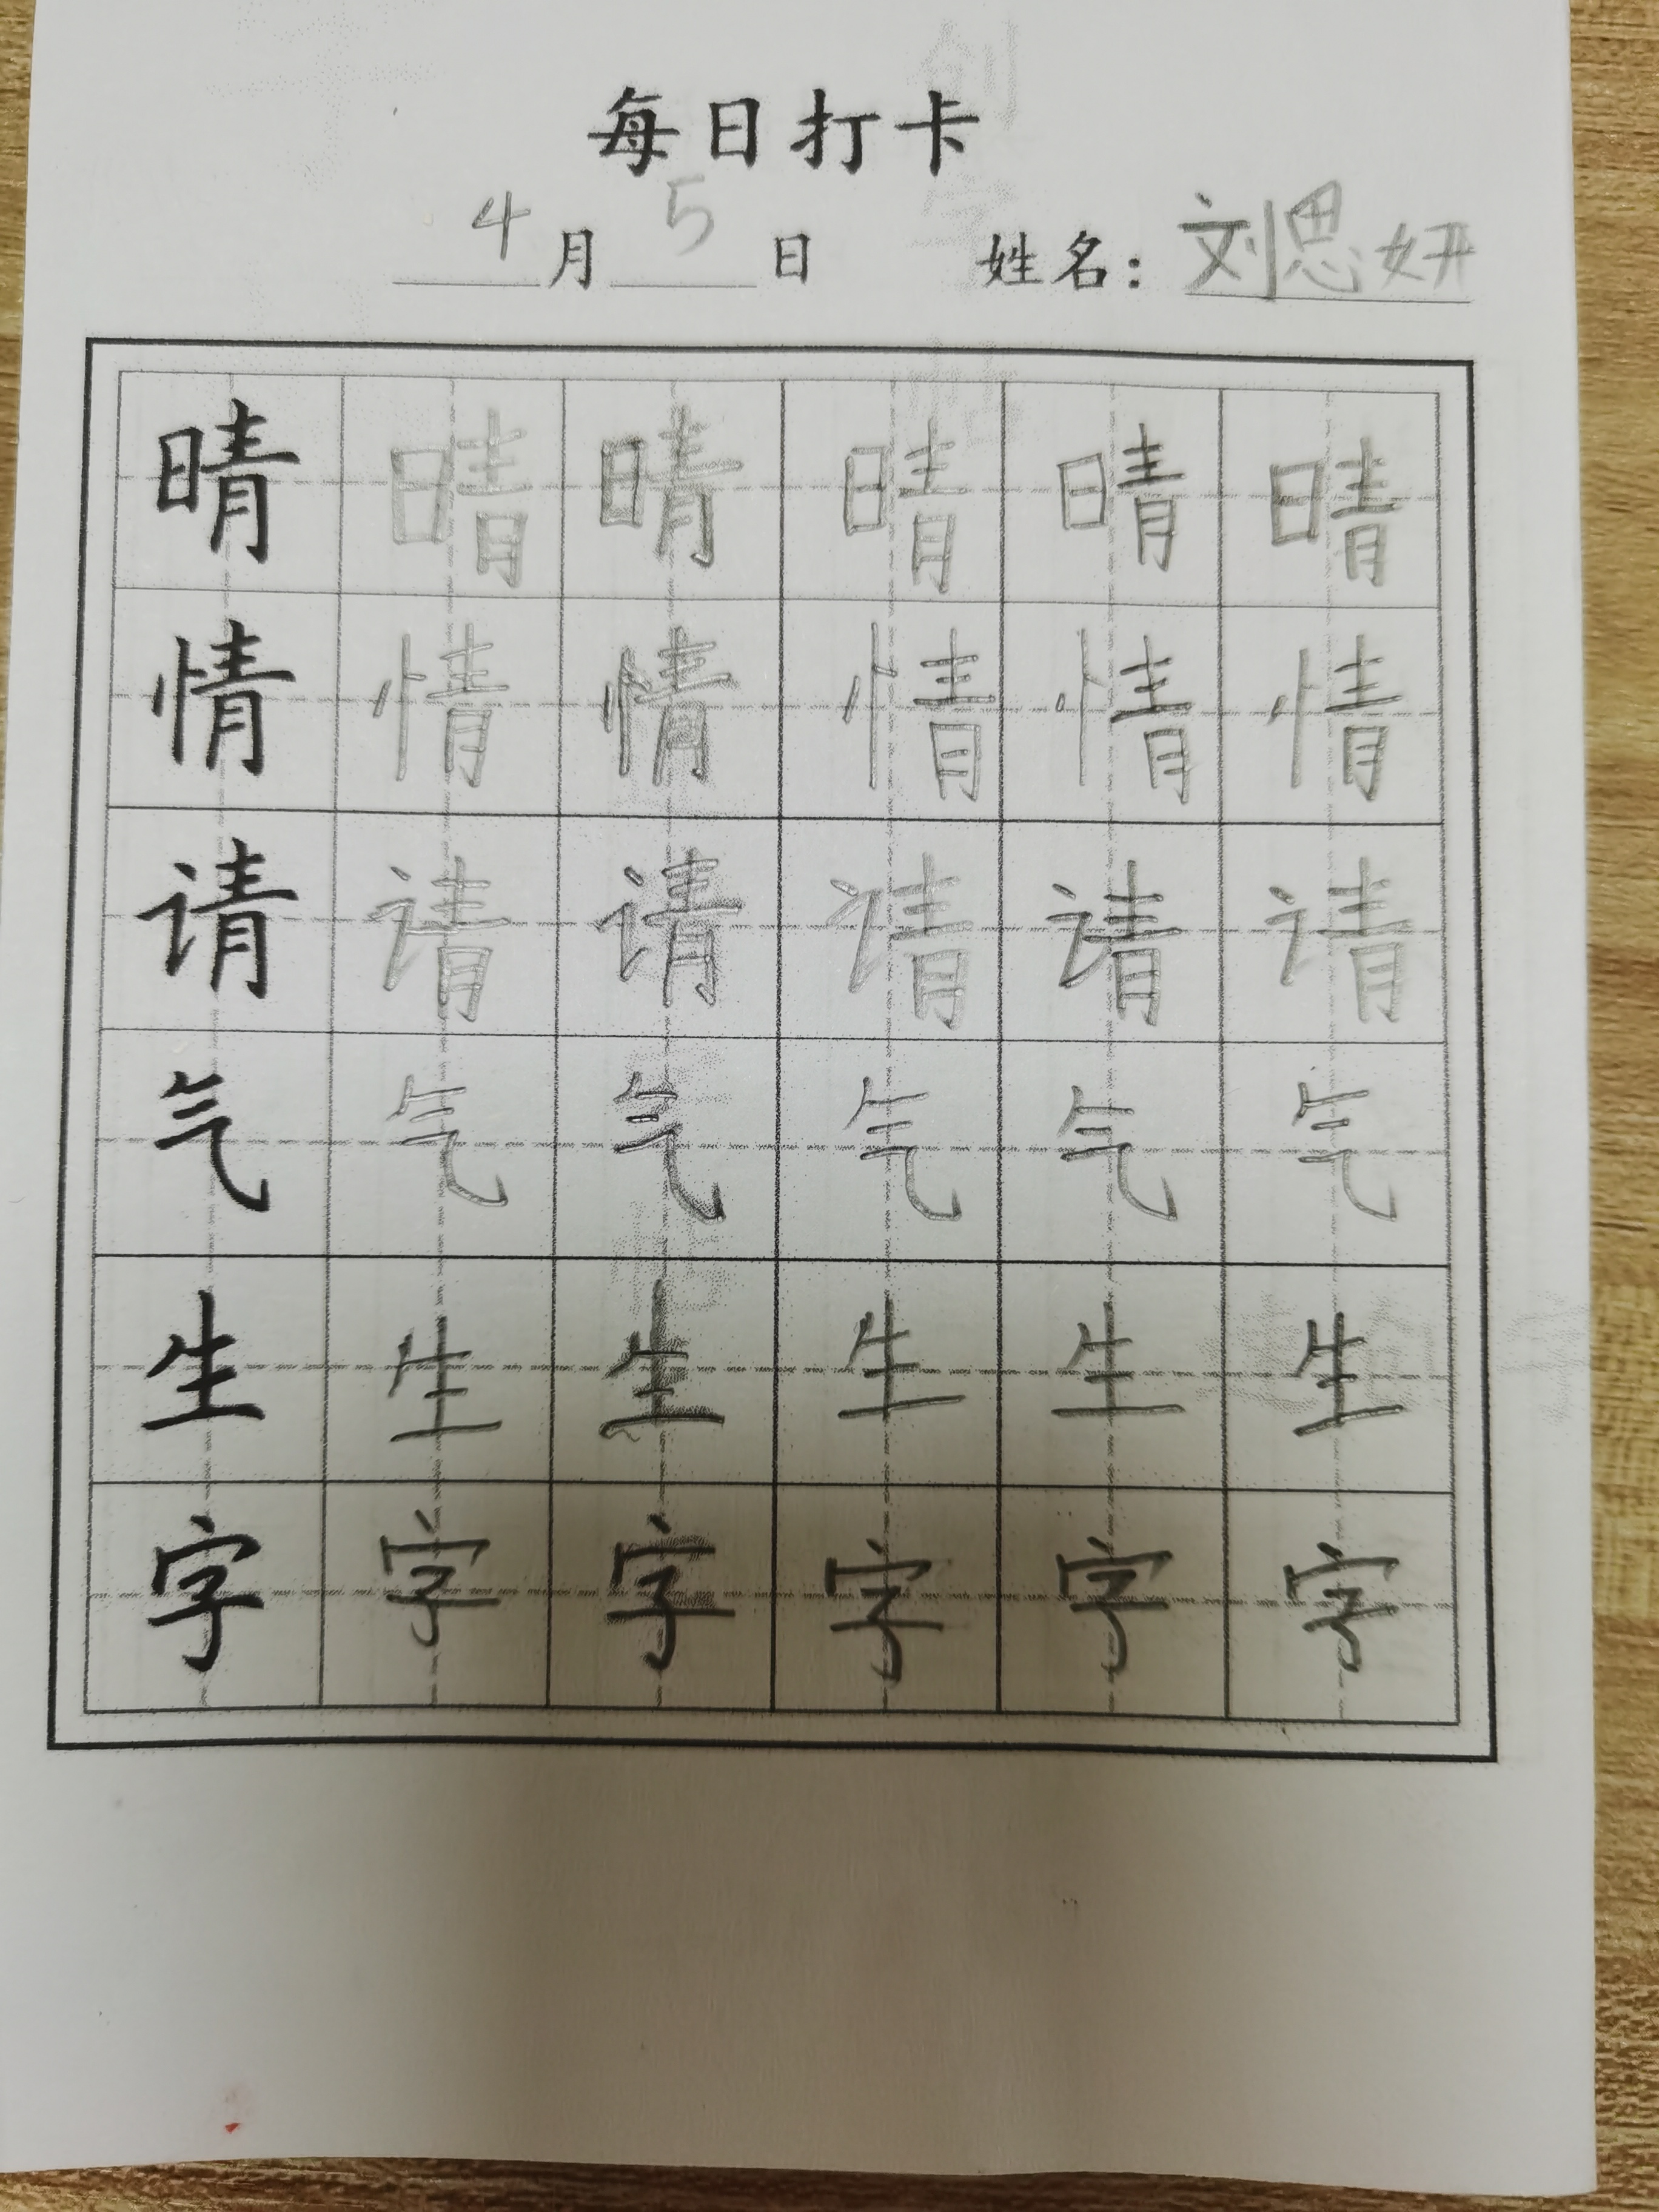 每日打卡
4月5日 姓名：刘思妍
晴晴晴晴晴晴
情情情情情情
请请请请请请
气气气气气气
生生生生生生
字字字字字字